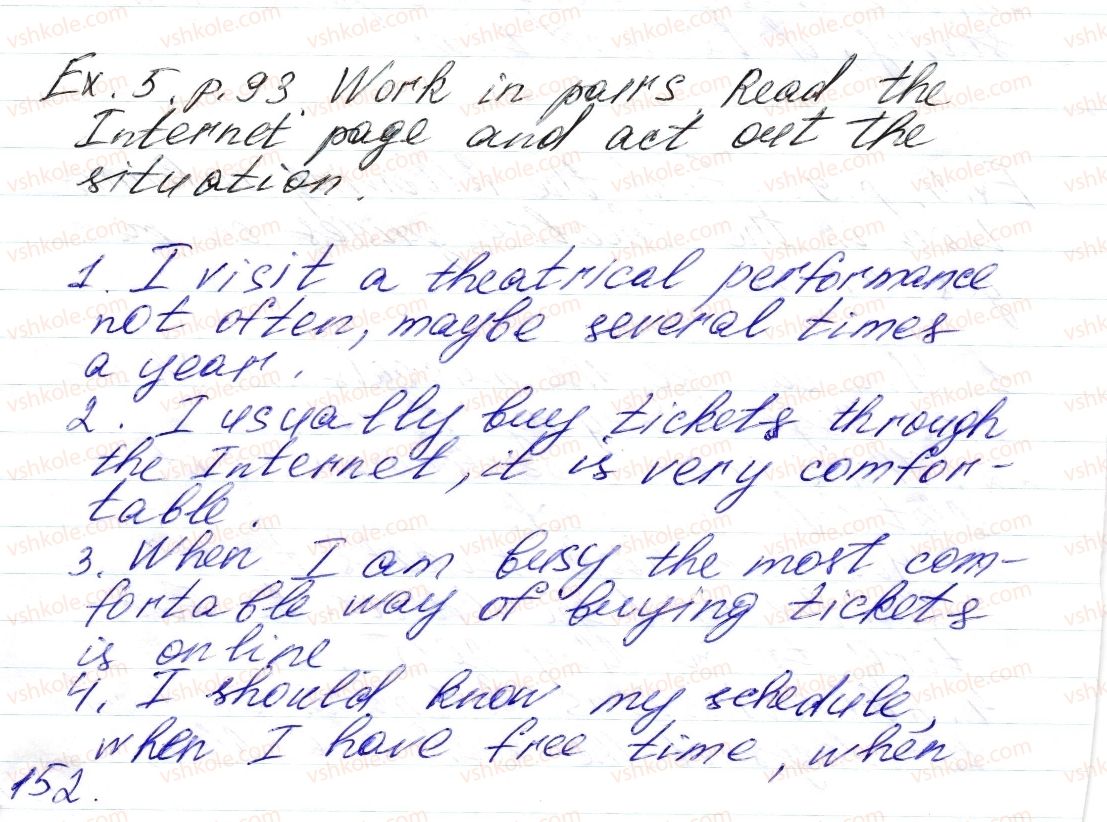 Ex. 5, p. 93. Work in pairs. Read the
Internet page and act out the
situation.
1. I visit a theatrical performance
not often, maybe several times
a year.
2. I usually buy tickets through
the Internet, it is very comfor-
table.
3. When I am busy the most com-
fortable way of buying tickets
is online
4. I should know my schedule,
when I have free time, when
152.